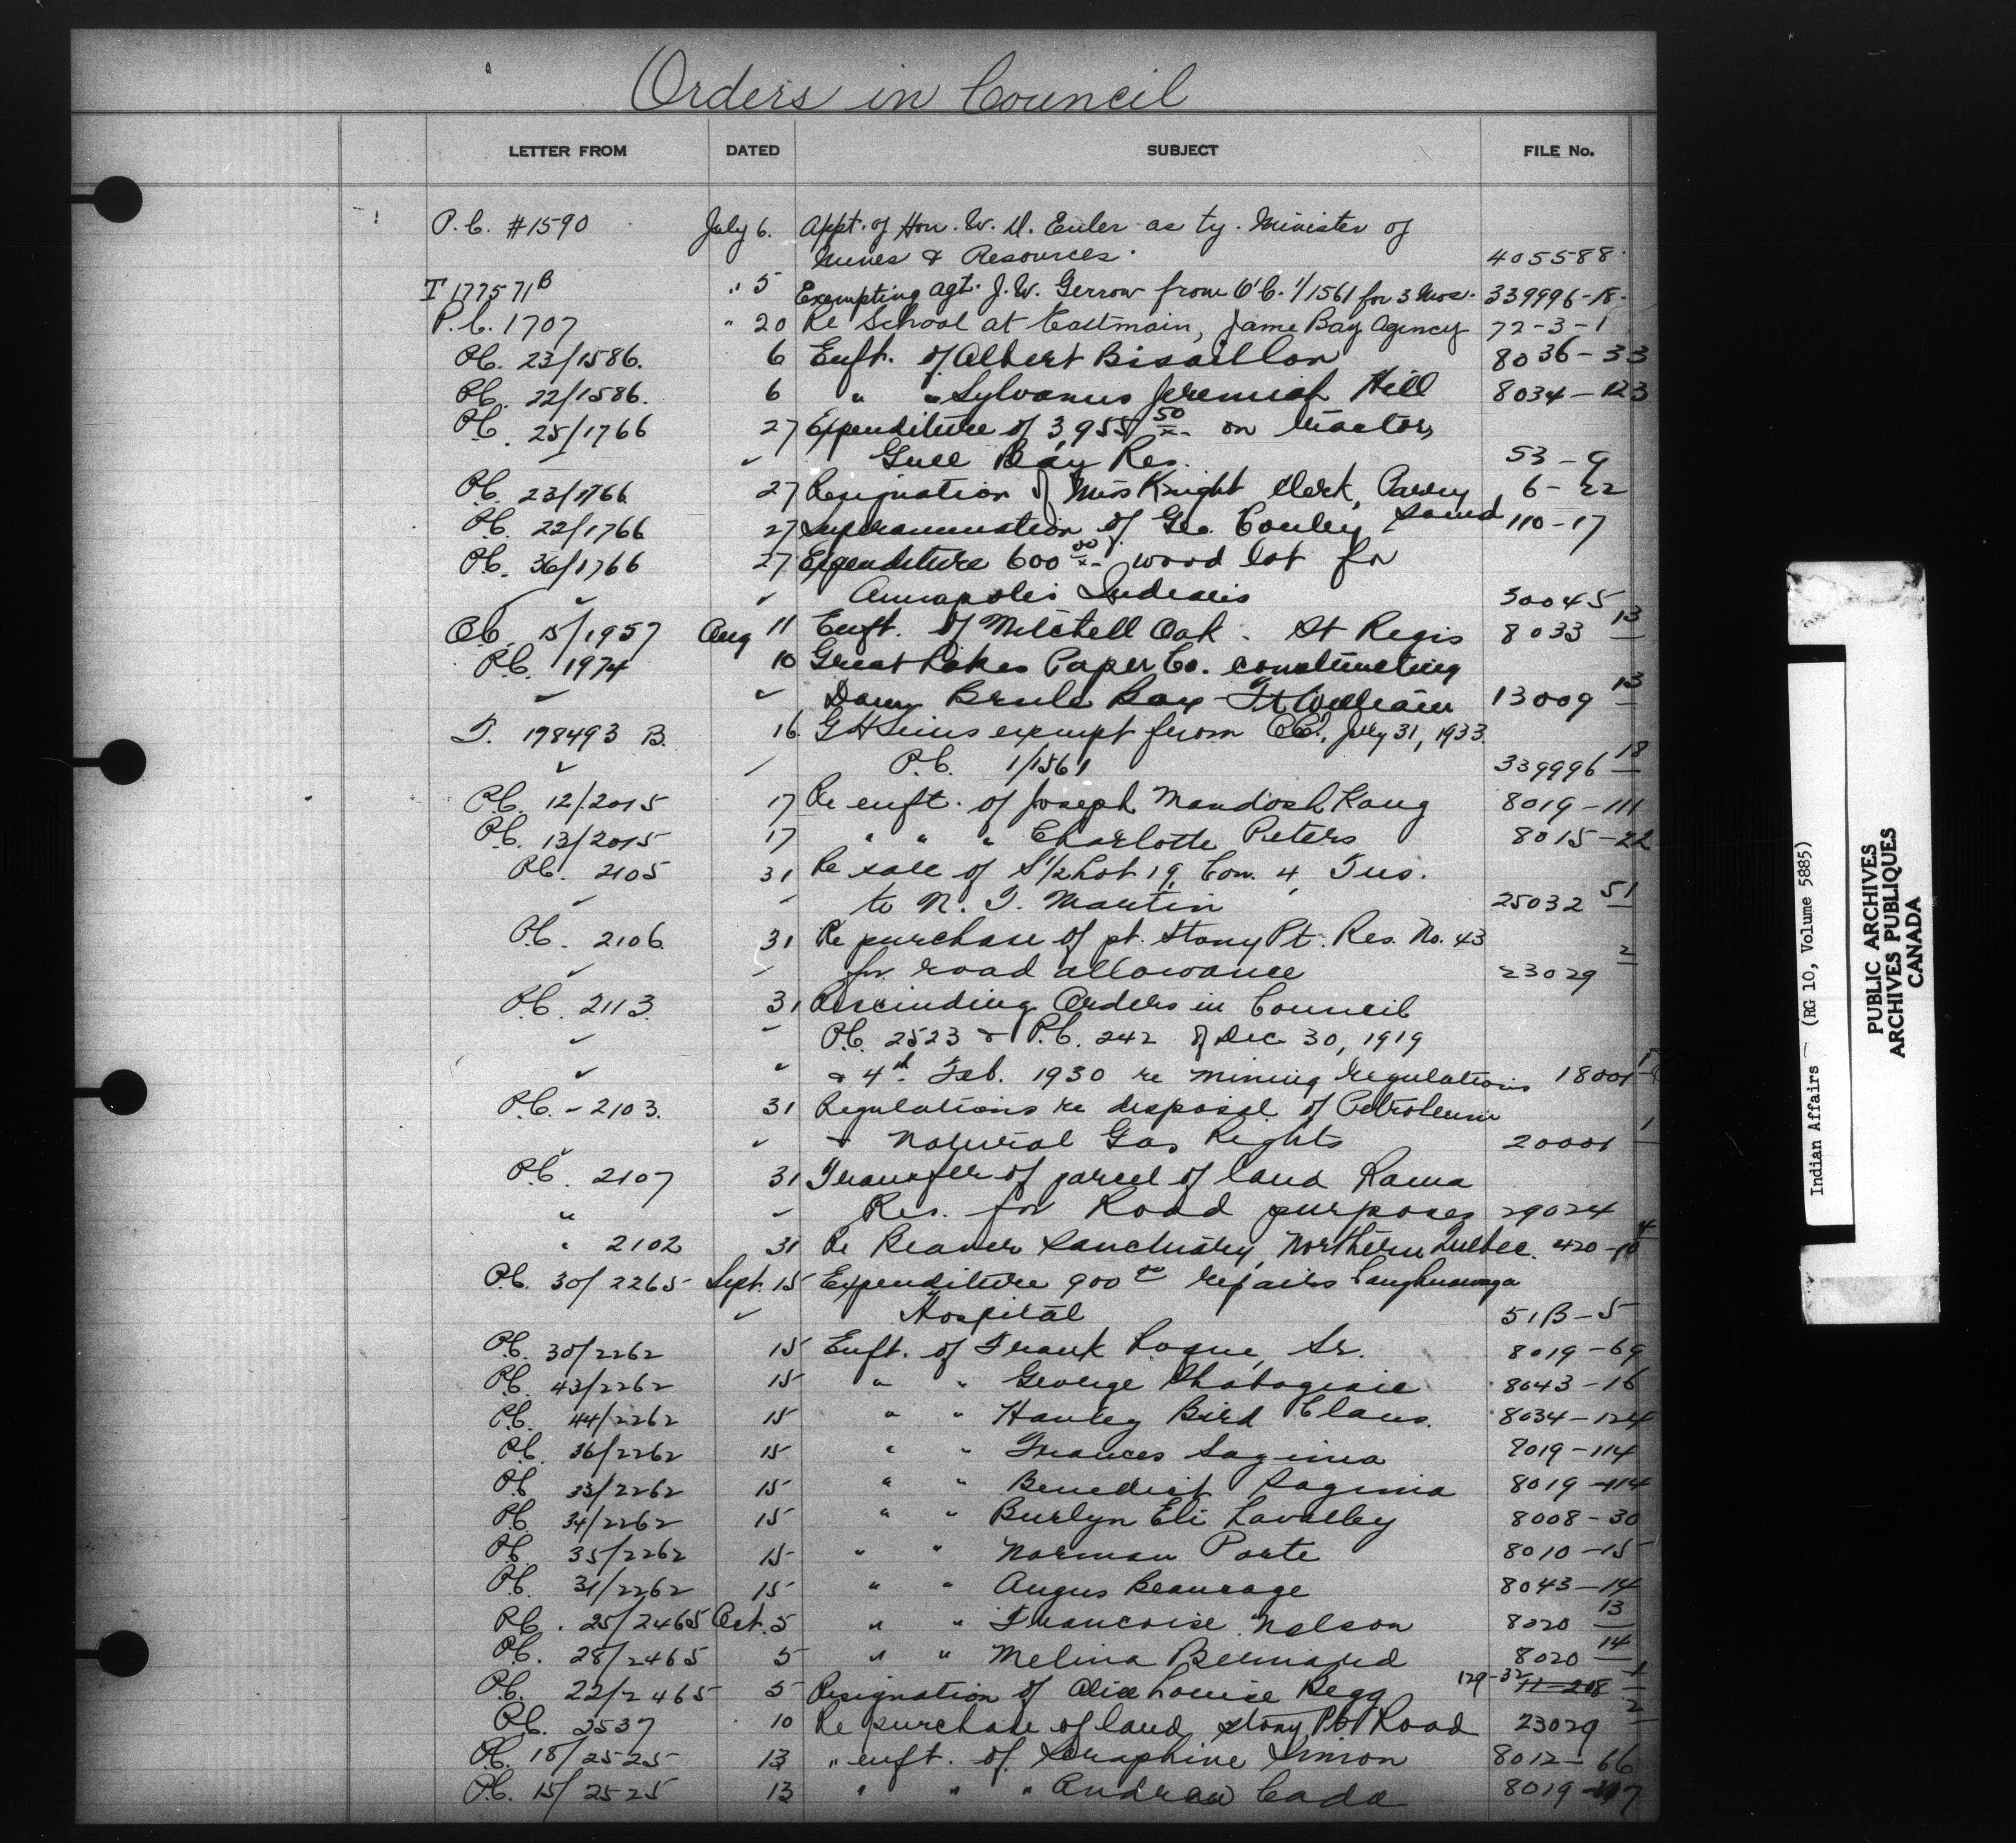 Orders in Council
LETTER FROM DATED SUBJECT FILE No.
P.C. #1590 July 6. Appt. of Hon. W. D. Euler as ty. Minister of
Mines & Resources. 405588
T 177571 B " 5 Exempting Agt. J. W. Gerrow from O.C. 1/1561 for 3 Mos. 339996-18.
P.C. 1707 " 20 Re School at Eastmain, Jame Bay Agency 72-3-1
P.C. 23/1586. 6 Enft. of Albert Bisaillon 8036-33
P.C. 22/1586. 6 " " Sylvanus Jeremiah Hill 8034-123
P.C. 25/1766 27 Expenditure of 3,955 50/x on tractor,
Gull Bay Res. 53-9
P.C. 23/1766 27 Resignation of Miss Knight Clerk, Parry 6-22
Sound
P.C. 22/1766 27 Superannuation of Geo. Conley 110-17
P.C. 36/1766 27 Expenditure 600 00/x wood lot for
Annapolis Indians 30045
P.C. 15/1957 Aug 11 Enft. of Mitchell Oak. St Regis 8033 13
P.C. 1974 10 Great Lakes Paper Co. constructing
Dam Brule Bay Ft William 13009 13
T. 178493 B. 16. G H Sims exempt from O.C., July 31, 1933.
P.C. 1/1561 339996 18
P.C. 12/2015 17 Re enft. of Joseph Mandosh Kang 8019-111
P.C. 13/2015 17 " " " Charlotte Peters 8015-22
P.C. 2105 31 Re sale of S 1/2 Lot 19, Con. 4, Tus.
to N. T. Martin 25032 51
P.C. 2106 31 Re purchase of pt. Stony Pt. Res. No. 43
for road allowance 23029 2
P.C. 2113. 31 Rescinding Orders in Council
P.C. 2523 & P.C. 242 of Dec 30, 1919
& 4th Feb. 1930 re mining regulations 18001
P.C. - 2103. 31 Regulations re disposal of Petroleum
& Natural Gas Rights 20001 1
P.C. 2107 31 Transfer of parcel of land Rama
" Res. for Road purposes 29024
" 2102 31 Re Beaver Sanctuary, Northern Quebec. 420-10 4
P.C. 30/2265 Sept. 15 Expenditure 900 00 repairs Caughnawaga
Hospital 51B-5
P.C. 30/2262 15 Enft. of Frank Logue, Sr. 8019-69
P.C. 43/2262 15 " " George 8043-16
P.C. 44/2262 15 " " Hanley Bird Claus. 8034-124
P.C. 36/2262 15 " " Frances Sagima 8019-114
P.C. 33/2262 15 " " Benedict Sagima 8019-114
P.C. 34/2262 15 " " Burlyn Eli Lavalley 8008-30
P.C. 35/2262 15 " " Norman Porte 8010-15
P.C. 31/2262 15 " " Angus Beaucage 8043-14
P.C. 25/2465 Oct. 5 " " Francoise Nelson 8020 13
P.C. 28/2465 5 " " Melina Bernard 8020 14
P.C. 22/2465 5 Resignation of Alice Louise Begg 129-32 11-208 1
P.C. 2537 10 Re purchase of land, Stony Pt Road 23029 2
P.C. 18/2525 13 " enft. of Seraphine Simon 8012-66
P.C. 15/2525 13 " " " Andrew Cada 8019-107
Indian Affairs - (RG 10, Volume 5885)
PUBLIC ARCHIVES
ARCHIVES PUBLIQUES
CANADA